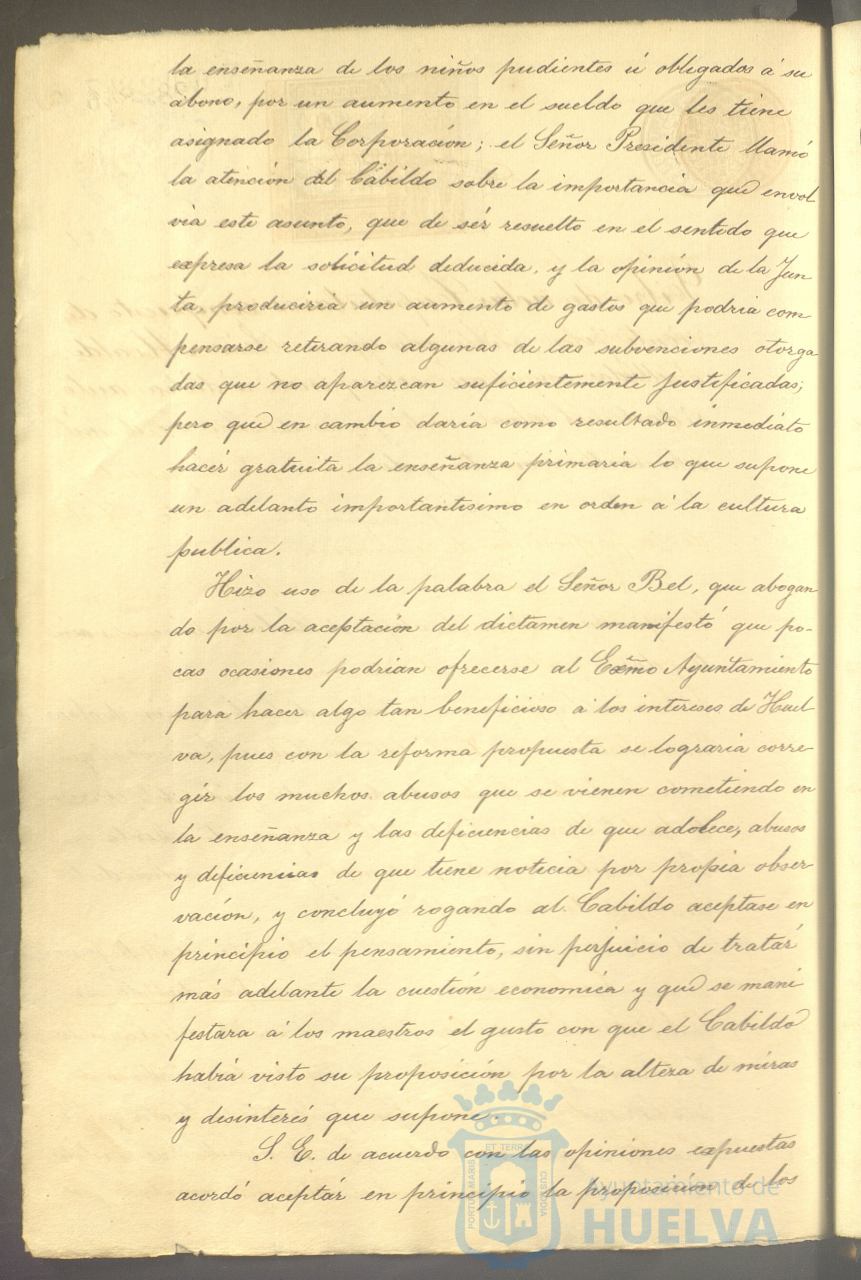 la enseñanza de los niños pudientes ú obligados á su
abono, por un aumento en el sueldo que les tiene
asignado la Corporación; el Señor Presidente llamó
la atención del Cabildo sobre la importancia que envol
via este asunto, que de sér resuelto en el sentido que
expresa la solicitud deducida, y la opinión de la Jun
ta, produciria un aumento de gastos que podria com
pensarse retirando algunas de las subvenciones otorga
das que no aparezcan suficientemente justificadas;
pero que en cambio daria como resultado inmediato
hacér gratuita la enseñanza primaria lo que supone
un adelanto importantisimo en orden á la cultura
publica.
Hizo uso de la palabra el Señor Bel, que abogan
do por la aceptación del dictamen manifestó que po-
cas ocasiones podrian ofrecerse al Exm̃o Ayuntamiento
para hacer algo tan beneficioso á los intereses de Huel
va, pues con la reforma propuesta se lograria corre-
gir los muchos abusos que se vienen cometiendo en
la enseñanza y las deficiencias de que adolece, abusos
y deficiencias de que tiene noticia por propia obser-
vación, y concluyó rogando al Cabildo aceptase en
principio el pensamiento, sin perjuicio de tratár
más adelante la cuestión economica y que se mani
festara á los maestros el gusto con que el Cabildo
habia visto su proposición por la alteza de miras
y desinterés que supone.
S. E. de acuerdo con las opiniones expuestas
acordó aceptár en principio la proposición de los
PORTUS MARIS ET TERRAE CUSTODIA
Ayuntamiento de
HUELVA